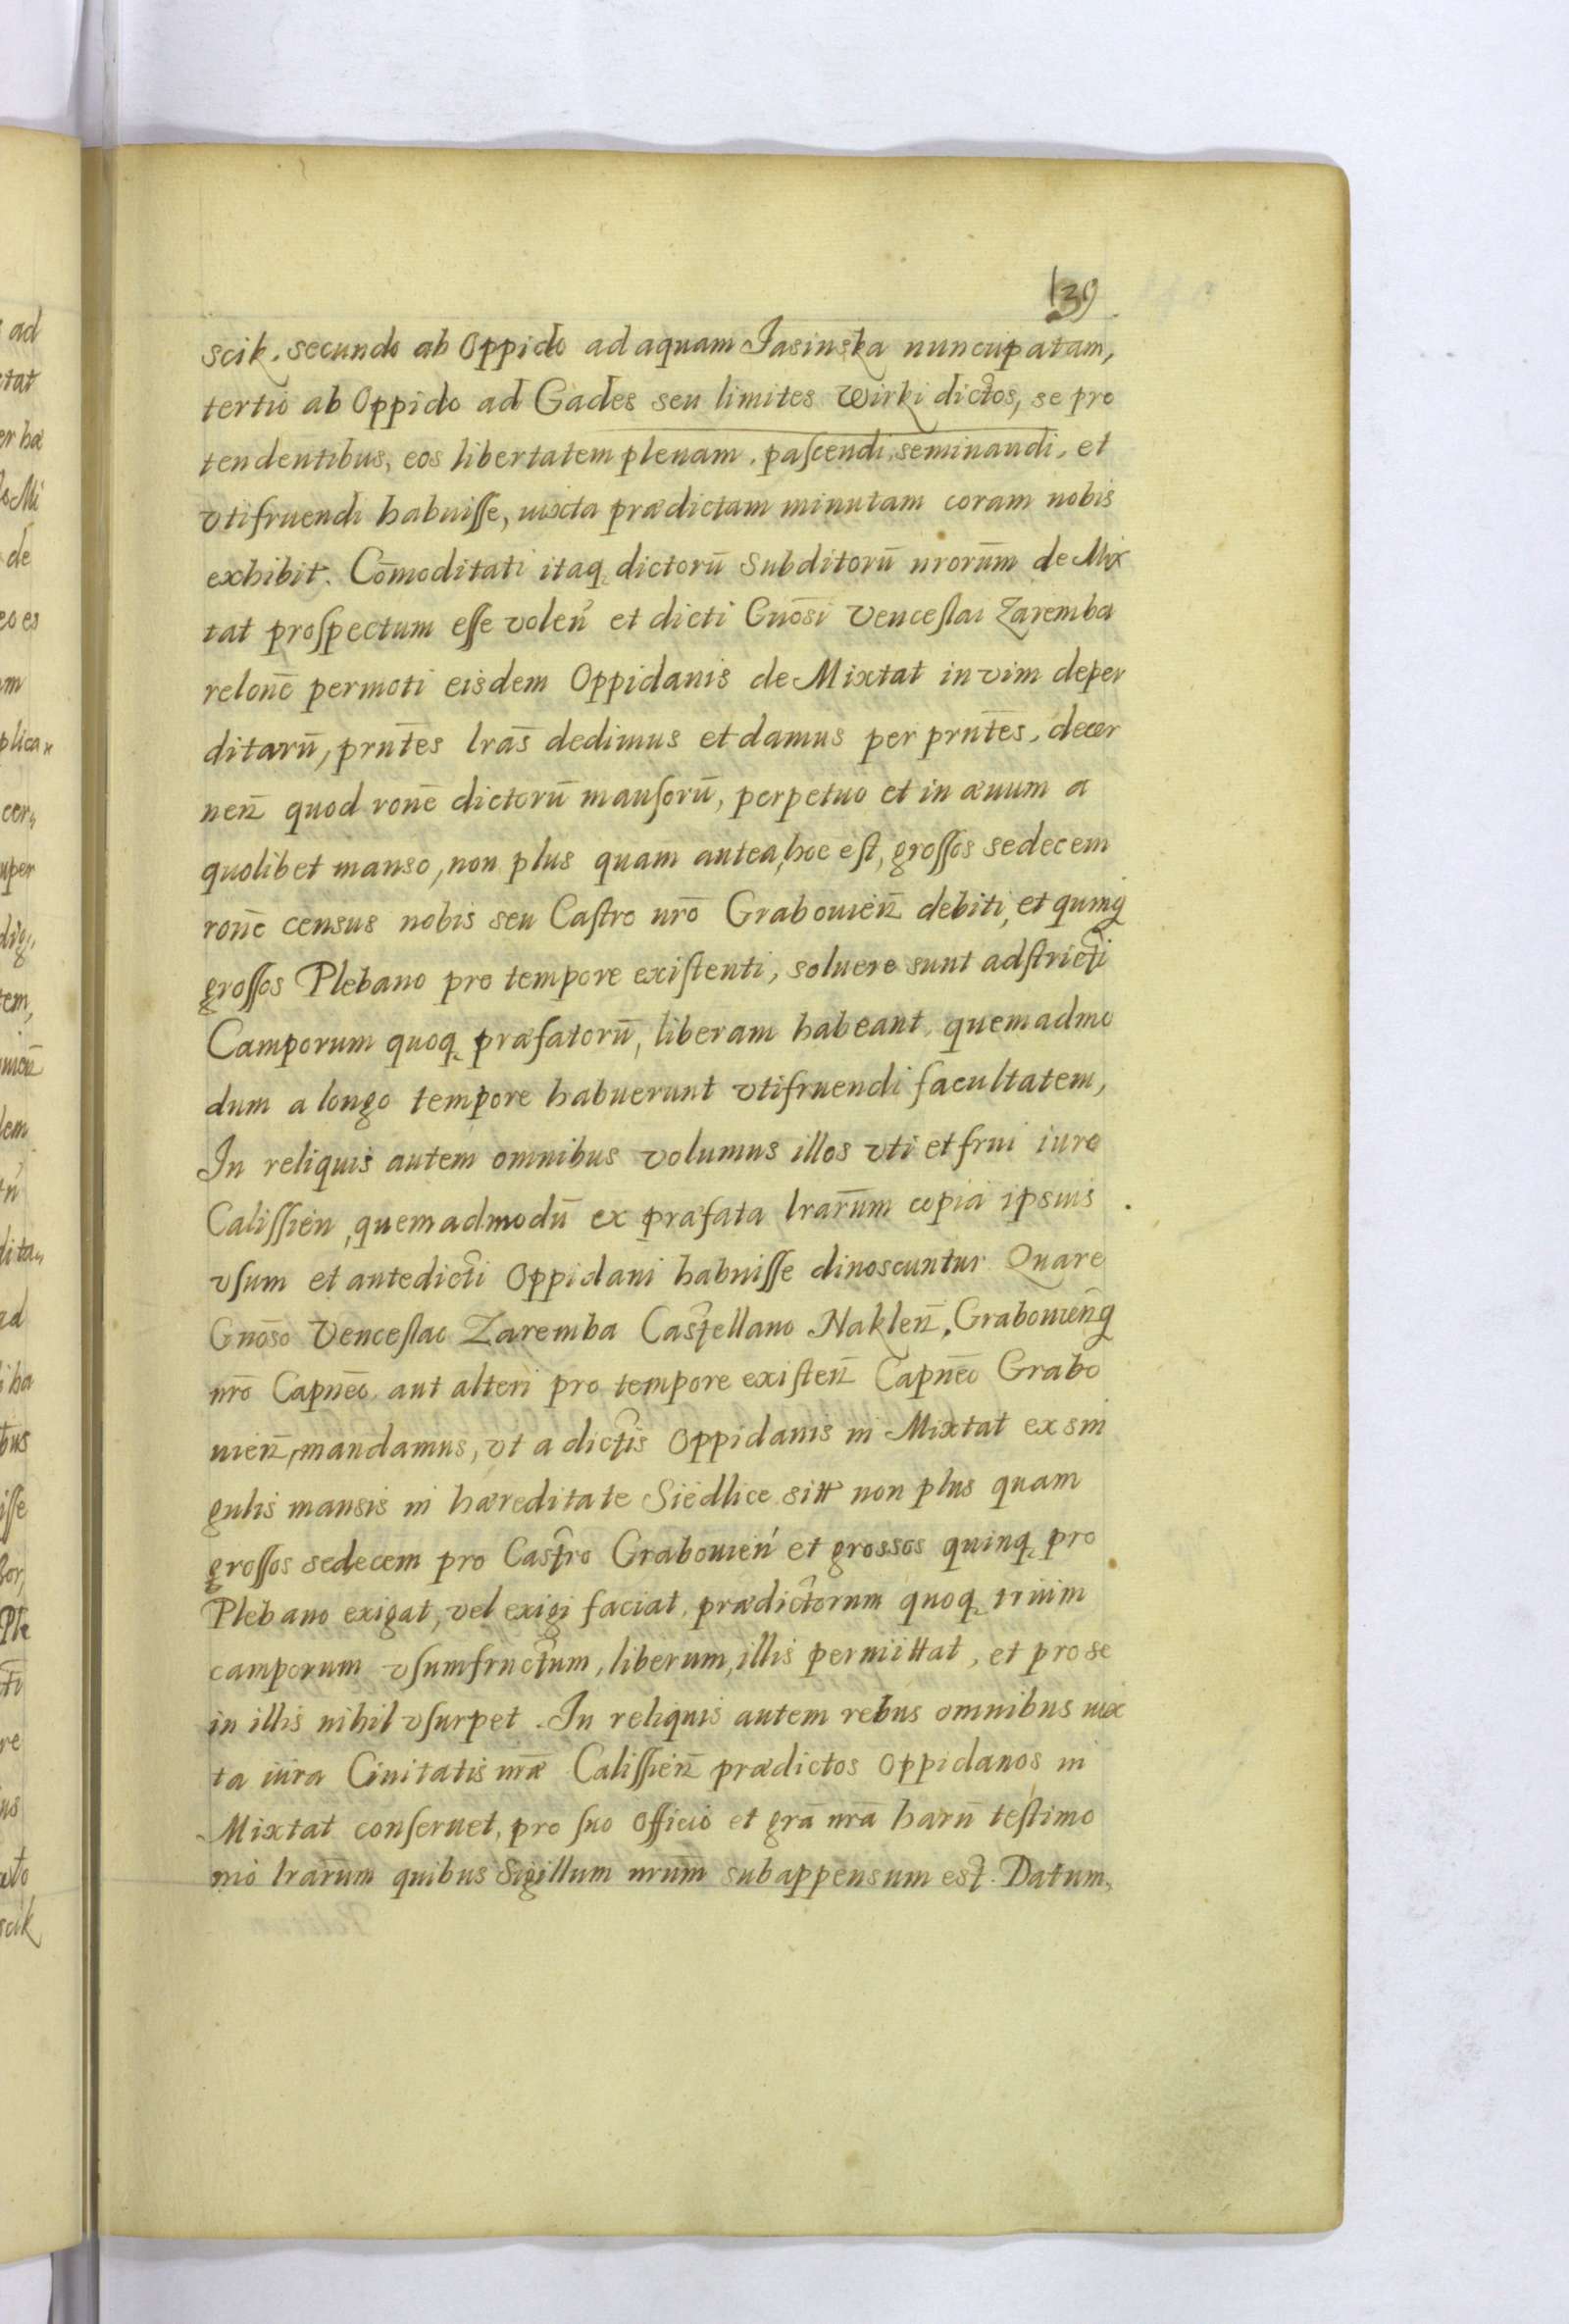 139
scik, secundo ab Oppido ad aquam Jasinska nuncupatam,
tertio ab Oppido ad Gades seu limites Wirki dictos, se pro
tendentibus, eos libertatem plenam, pascendi, seminandi, et
vtifruendi habuisse, iuxta prædictam minutam coram nobis
exhibit. Com̄oditati itaq dictorū Subditorū nrorūm de Mix
tat prospectum esse volen̄ et dicti Gnōsi Venceslai Zaremba
relonē permoti eisdem Oppidanis de Mixtat in vim deper
ditarū, prntēs lrās dedimus et damus per prntēs, decer
nen̄ quod ronē dictorū mansorū, perpetuo et in æuum a
quolibet manso, non plus quam antea, hoc est, grossos sedecem
ronē census nobis seu Castro nrō Grabouien̄ debiti, et quinq
grossos Plebano pro tempore existenti, soluere sunt adstricti
Camporum quoq præfatorū, liberam habeant, quemadmo
dum a longo tempore habuerunt vtifruendi facultatem,
In reliquis autem omnibus volumus illos vti et frui iure
Calissien, quemadmodū ex præfata lrarūm copia ipsius
vsum et antedicti Oppidani habuisse dinoscuntur Quare
Gnōso Venceslao Zaremba Castellano Naklen̄, Grabouien̄q
nrō Capnēo aut alteri pro tempore existen̄ Capnēo Grabo
uien̄, mandamus, vt a dictis Oppidanis in Mixtat ex sin
gulis mansis in hæreditate Siedlice sitt non plus quam
grossos sedecem pro Castro Grabouien̄ et grossos quinq pro
Plebano exigat, vel exigi faciat, prædictorum quoq trium
camporum vsumfructum, liberum, illis permittat, et pro se
in illis nihil vsurpet. In reliquis autem rebus omnibus iux
ta iura Ciuitatis nrǣ Calissien̄ prædictos Oppidanos in
Mixtat conseruet, pro suo Officio et grā nrā harū testimo
nio lrarūm quibus Sigillum nrūm subappensum est. Datum,